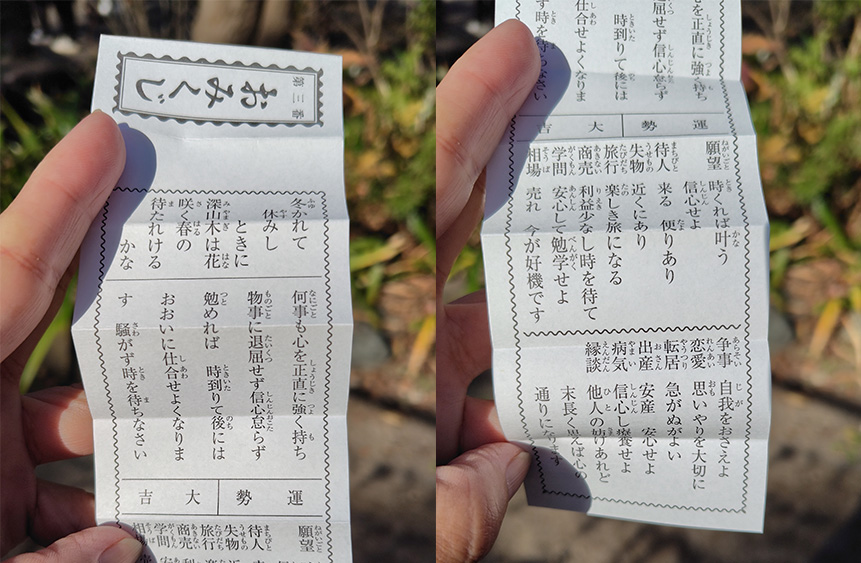 第三番
おみくじ
冬かれて
休みし
ときに
深山木は花
咲く春の
待たれける
かな
何事も心を正直に強く持ち
物事に退屈せず信心怠らず
勉めれば 時到りて後には
おおいに仕合せよくなりま
す 騒がず時を待ちなさい
運勢 大吉
願望
待人
失物
旅行
商売
学問
相場
を正直に強く持ち
屈せず信心怠らず
時到りて後には
仕合せよくなりま
ず時を待ちなさい
運勢 大吉
願望 時くれば叶う
信心せよ
待人 来る 便りあり
失物 近くにあり
旅行 楽しき旅になる
商売 利益少なし時を待て
学問 安心して勉学せよ
相場 売れ 今が好機です
争事 自我をおさえよ
恋愛 思いやりを大切に
転居 急がぬがよい
出産 安産 安心せよ
病気 信心し養せよ
縁談 他人の妨げあれど
末長く思えば心の
通りになります